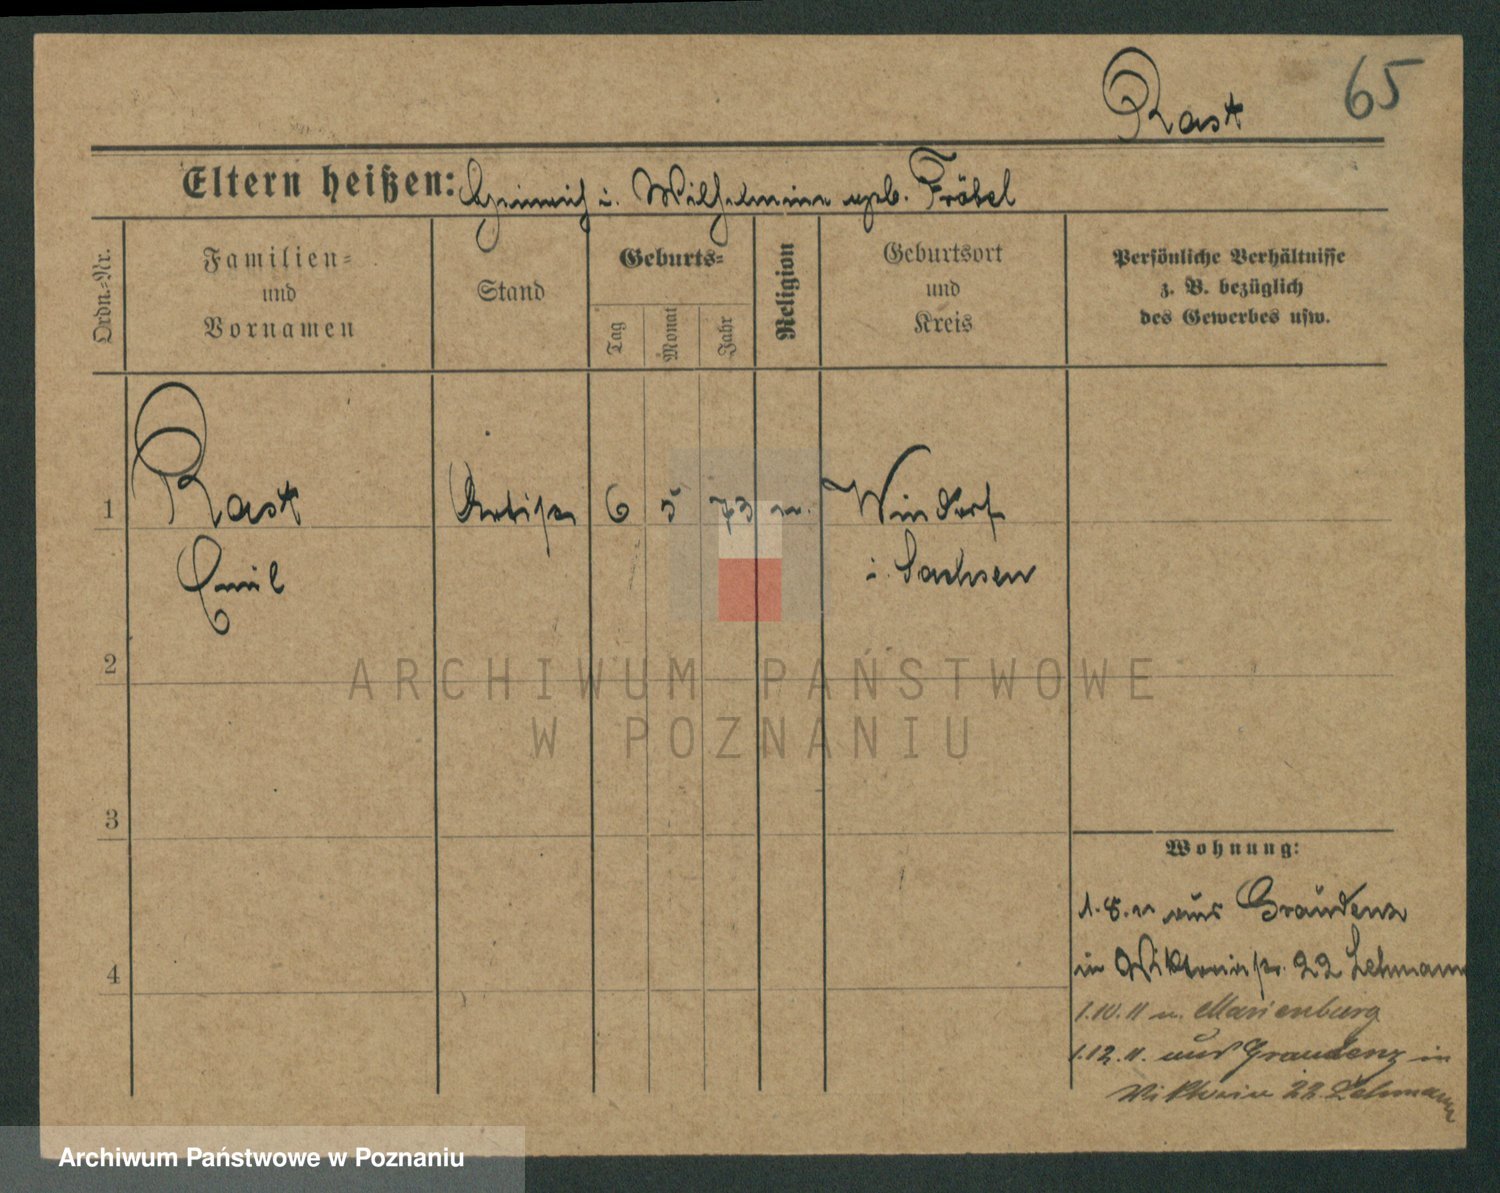 65
Rast
Eltern heißen: Heinrich u. Wilhelmine geb. Fröbel
Ordn.-Nr.
Familien-
und
Vornamen
Stand
Geburts-
Tag
Monat
Jahr
Religion
Geburtsort
und
Kreis
Persönliche Verhältnisse
z. B. bezüglich
des Gewerbes usw.
1
Rast
Emil
Artist
6
5
73
Windorf
i. Sachsen
2
3
4
Wohnung:
1.8.11 aus Graudenz
in Viktoriastr. 22 Lehmann
1.10.11 n. Marienburg
1.12.11. aus Graudenz in
Viktoria 22. Lehmann
ARCHIWUM PAŃSTWOWE
W POZNANIU
Archiwum Państwowe w Poznaniu